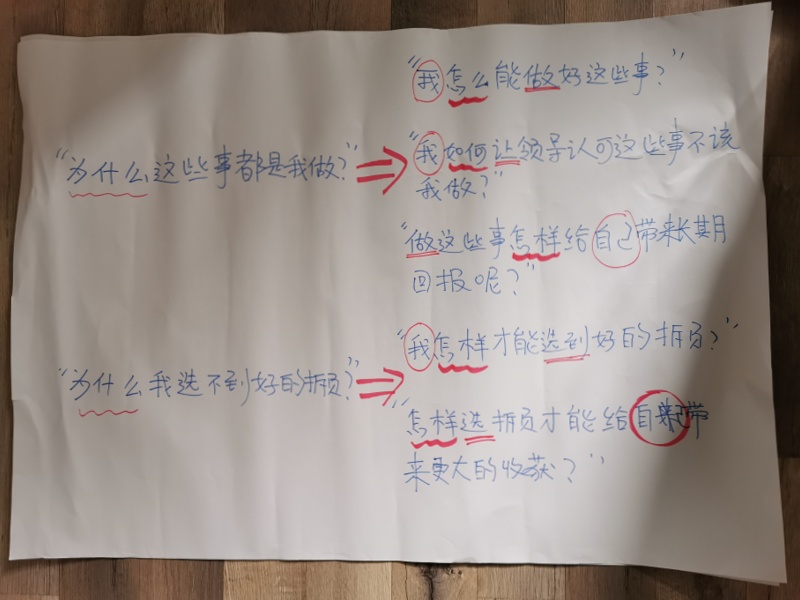 "为什么这些事都是我做?"
"我怎么能做好这些事?"
"我如何让领导认可这些事不该
我做?"
"做这些事怎样给自己带来长期
回报呢?"
"为什么我选不到好的拆员?"
"我怎样才能选到好的拆员?"
"怎样选拆员才能给自己带
来更大的收获?"